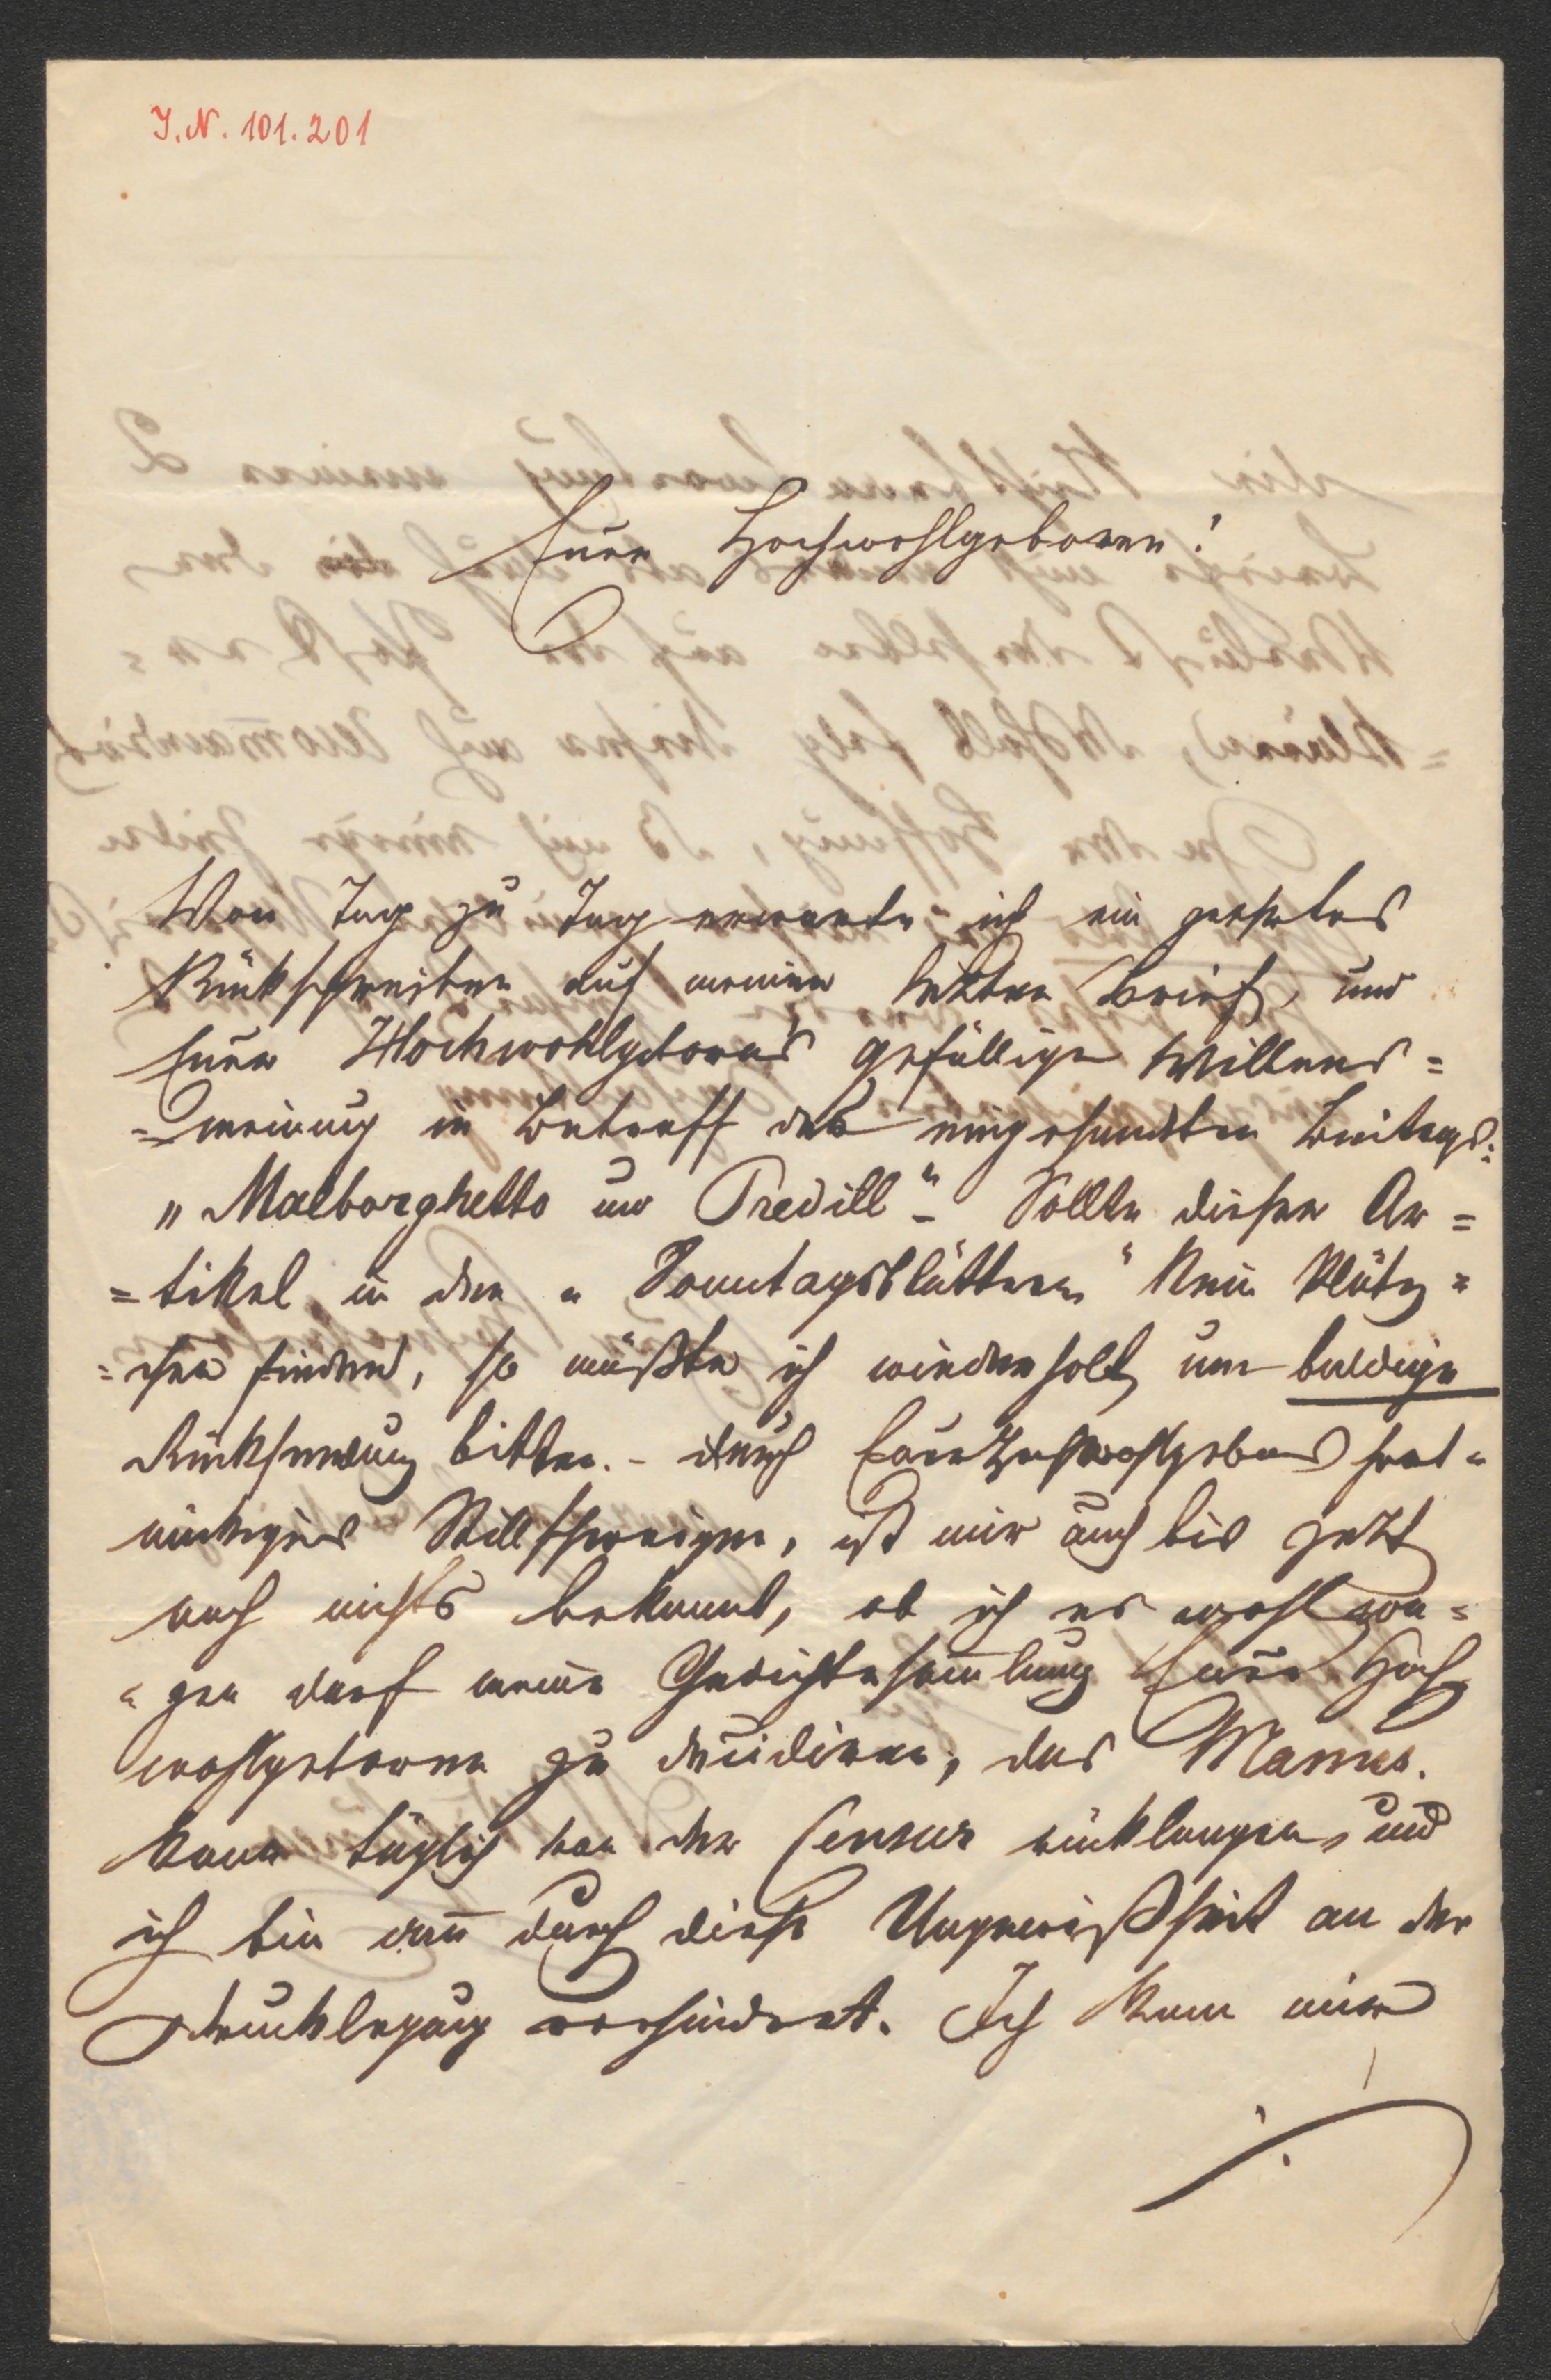 I.N. 101.201
Euer Hochwohlgeboren!
Von Tag zu Tag erwarte ich ein geehrtes
Rückschreiben auf meinen letzten Brief, und
Euer Hochwohlgeborns gefällige Willens=
=meinung in Betreff des eingesandten Beitags:
„Malborghetto und Predill" – Sollte dieser Ar=
=tikel in den „Sonntagsblättern" kein Plätz=
=chen finden, so müßte ich wiederholt um baldige
Rücksendung bitten. – Durch Euer Hochwohlgeborns hart=
näckiges Stillschweigen, ist mir auch bis jetzt
noch nichts bekannt, ob ich es wohl wa=
=gen darf meine Gedichtesam̄lung Euer Hoch
wohlgeboren zu dediciren; das Manus.
kann täglich von der Censur rücklangen, und
ich bin dan̄ durch diese Ungewißheit an der
Drucklegung verhindert. Ich kann mir
./.